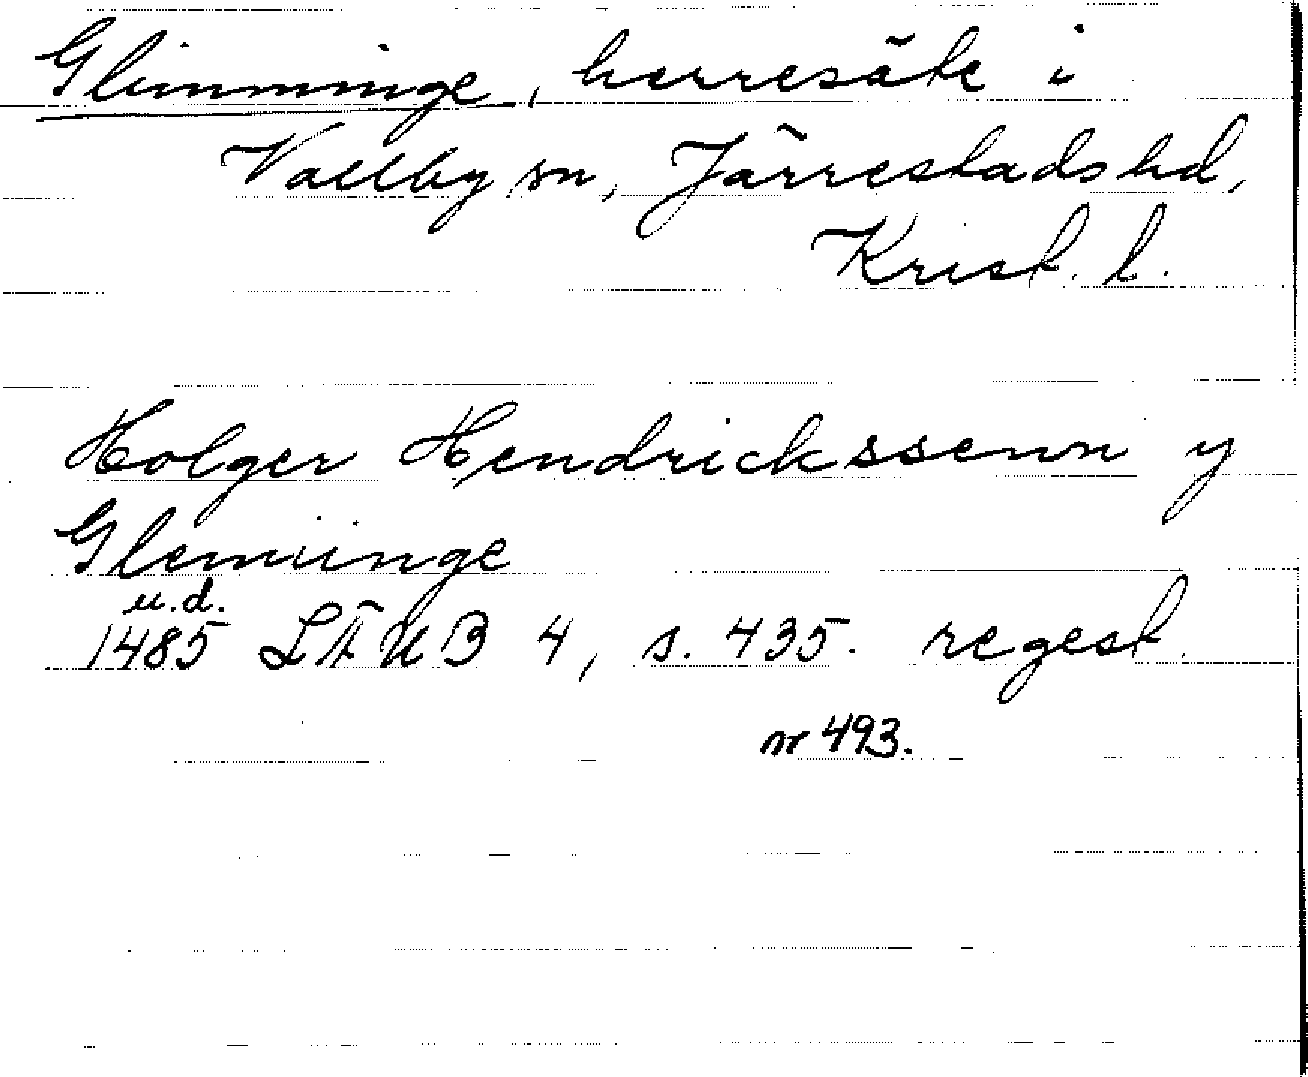 Glimminge, herresäte i
Vallby sn, Järrestads hd,
Krist. l.
Holger Hendrickssenn y
Glemiinge
u.d.
1485 LÄUB 4, s. 435. regest
nr 493.